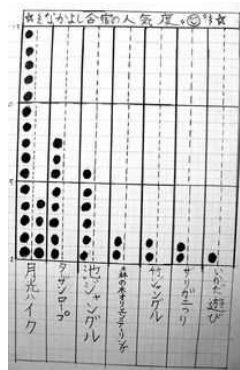 ☆なかよし合宿の人気度☆
月光ハイク
ターザンロープ
池ジャングル
森の木オリエンテーリング
竹ジャングル
ザリガニつり
いかだ遊び